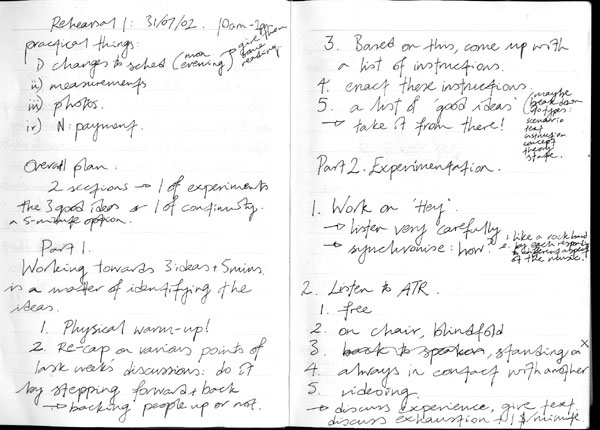 Rehearsal 1: 31/07/02. 10am-2pm
practical things:
i) changes to sched (mon evening) → give them some reading.
ii) measurements
iii) photos.
iv) N: payment.
Overall plan:
2 sections → 1 of experiments
the 3 good ideas or 1 of continuity.
a 5-minute option.
Part 1.
Working towards 3 ideas + 5 mins.
is a matter of identifying the
ideas.
1. Physical warm-up!
2. Re-cap on various points of
last weeks discussions: do it
by stepping forward + back
→ backing people up or not.
3. Based on this, come up with
a list of instructions.
4. enact these instructions.
5. a list of 'good ideas'
→ take it from there!
(maybe
break down
to types:
scenario
text
instruction
concept
theory
state.
Part 2. Experimentation.
1. Work on 'Hey'.
→ listen very carefully
→ synchronise: how?
1. like a rock band
2. by each responding
to different aspect
of the music!
2. Listen to ATR.
1. free
2. on chair, blindfold
3. back to speakers, standing on X
4. always in contact with another
5. videoing.
→ discuss experience, give text
discuss exhaustion + 1 $/minute